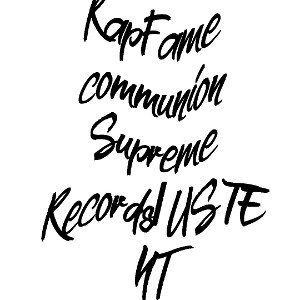 RapFame
communion
Supreme
Records! USTE
NT